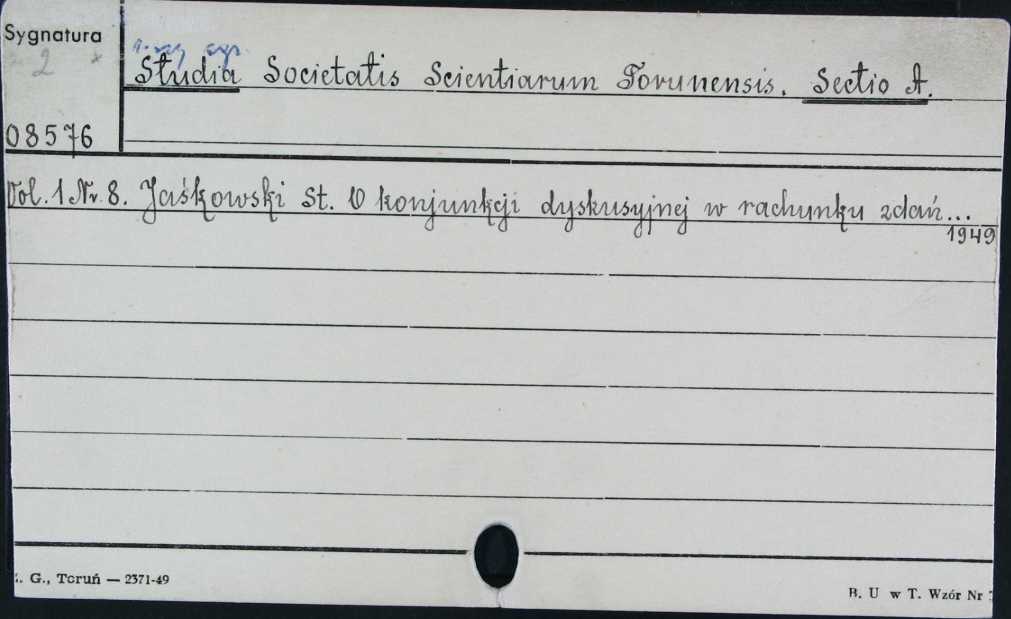 Sygnatura
2
Studia Societatis Scientiarum Torunensis. Sectio A.
08576
Vol. 1 Nr. 8. Jaśkowski St. O konjunkcji dyskusyjnej w rachunku zdań...
1949
. G., Toruń — 2371-49
B. U w T. Wzór Nr